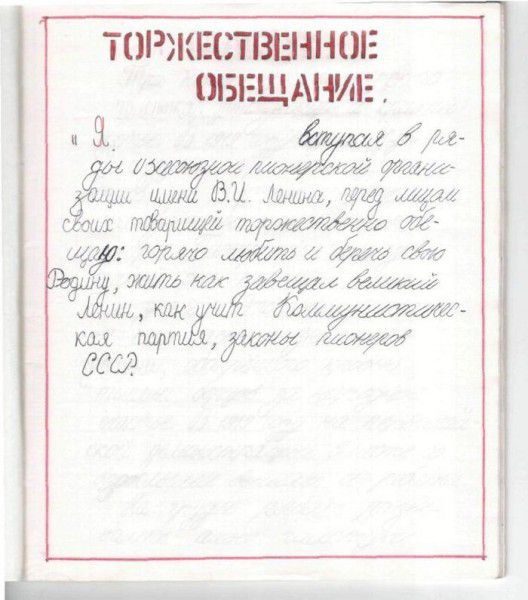 ТОРЖЕСТВЕННОЕ
ОБЕЩАНИЕ.
" Я, вступая в ря-
ды Всесоюзной пионерской органи-
зации имени В.И. Ленина, перед лицом
своих товарищей торжественно обе-
щаю: горячо любить и беречь свою
Родину, жить как завещал великий
Ленин, как учит Коммунистичес-
кая партия, законы пионеров
СССР.